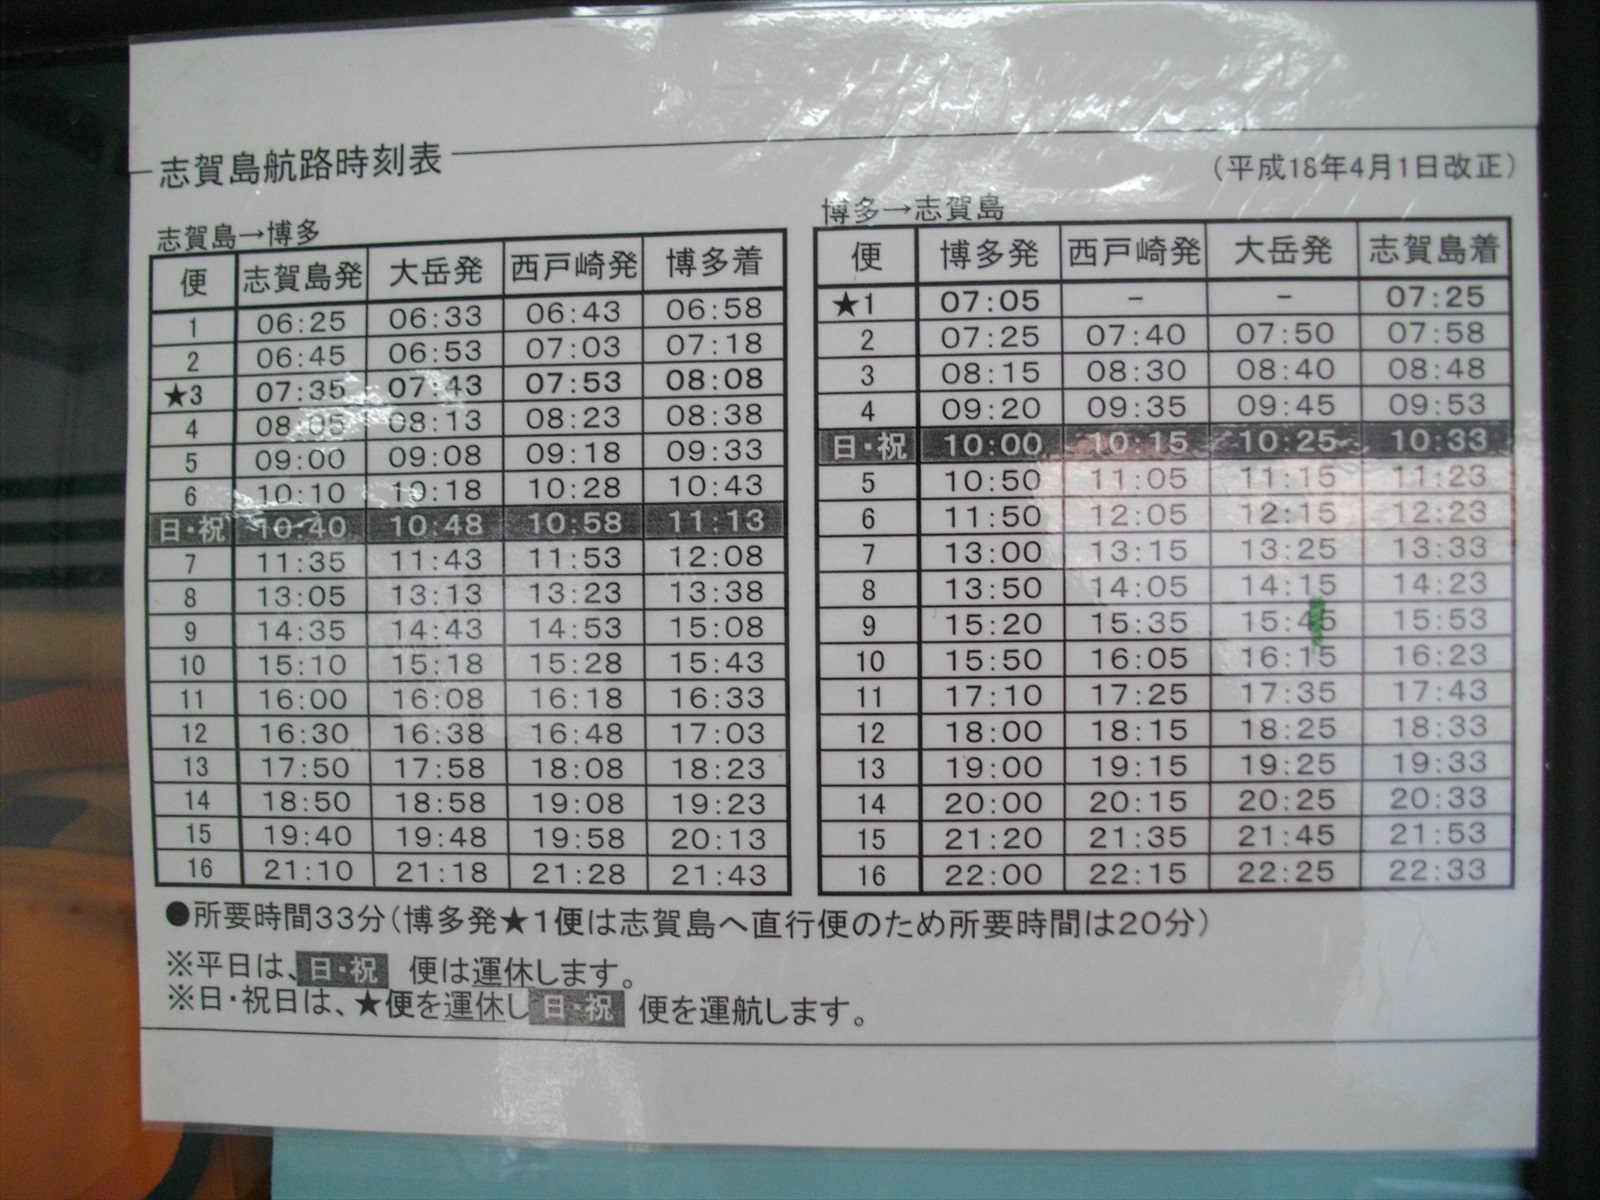 志賀島航路時刻表
(平成18年4月1日改正)
志賀島→博多
便 志賀島発 大岳発 西戸崎発 博多着
1 06:25 06:33 06:43 06:58
2 06:45 06:53 07:03 07:18
★3 07:35 07:43 07:53 08:08
4 08:05 08:13 08:23 08:38
5 09:00 09:08 09:18 09:33
6 10:10 10:18 10:28 10:43
日・祝 10:40 10:48 10:58 11:13
7 11:35 11:43 11:53 12:08
8 13:05 13:13 13:23 13:38
9 14:35 14:43 14:53 15:08
10 15:10 15:18 15:28 15:43
11 16:00 16:08 16:18 16:33
12 16:30 16:38 16:48 17:03
13 17:50 17:58 18:08 18:23
14 18:50 18:58 19:08 19:23
15 19:40 19:48 19:58 20:13
16 21:10 21:18 21:28 21:43
博多→志賀島
便 博多発 西戸崎発 大岳発 志賀島着
★1 07:05 － － 07:25
2 07:25 07:40 07:50 07:58
3 08:15 08:30 08:40 08:48
4 09:20 09:35 09:45 09:53
日・祝 10:00 10:15 10:25 10:33
5 10:50 11:05 11:15 11:23
6 11:50 12:05 12:15 12:23
7 13:00 13:15 13:25 13:33
8 13:50 14:05 14:15 14:23
9 15:20 15:35 15:45 15:53
10 15:50 16:05 16:15 16:23
11 17:10 17:25 17:35 17:43
12 18:00 18:15 18:25 18:33
13 19:00 19:15 19:25 19:33
14 20:00 20:15 20:25 20:33
15 21:20 21:35 21:45 21:53
16 22:00 22:15 22:25 22:33
●所要時間33分(博多発★1便は志賀島へ直行便のため所要時間は20分)
※平日は、日・祝 便は運休します。
※日・祝日は、★便を運休し日・祝 便を運航します。